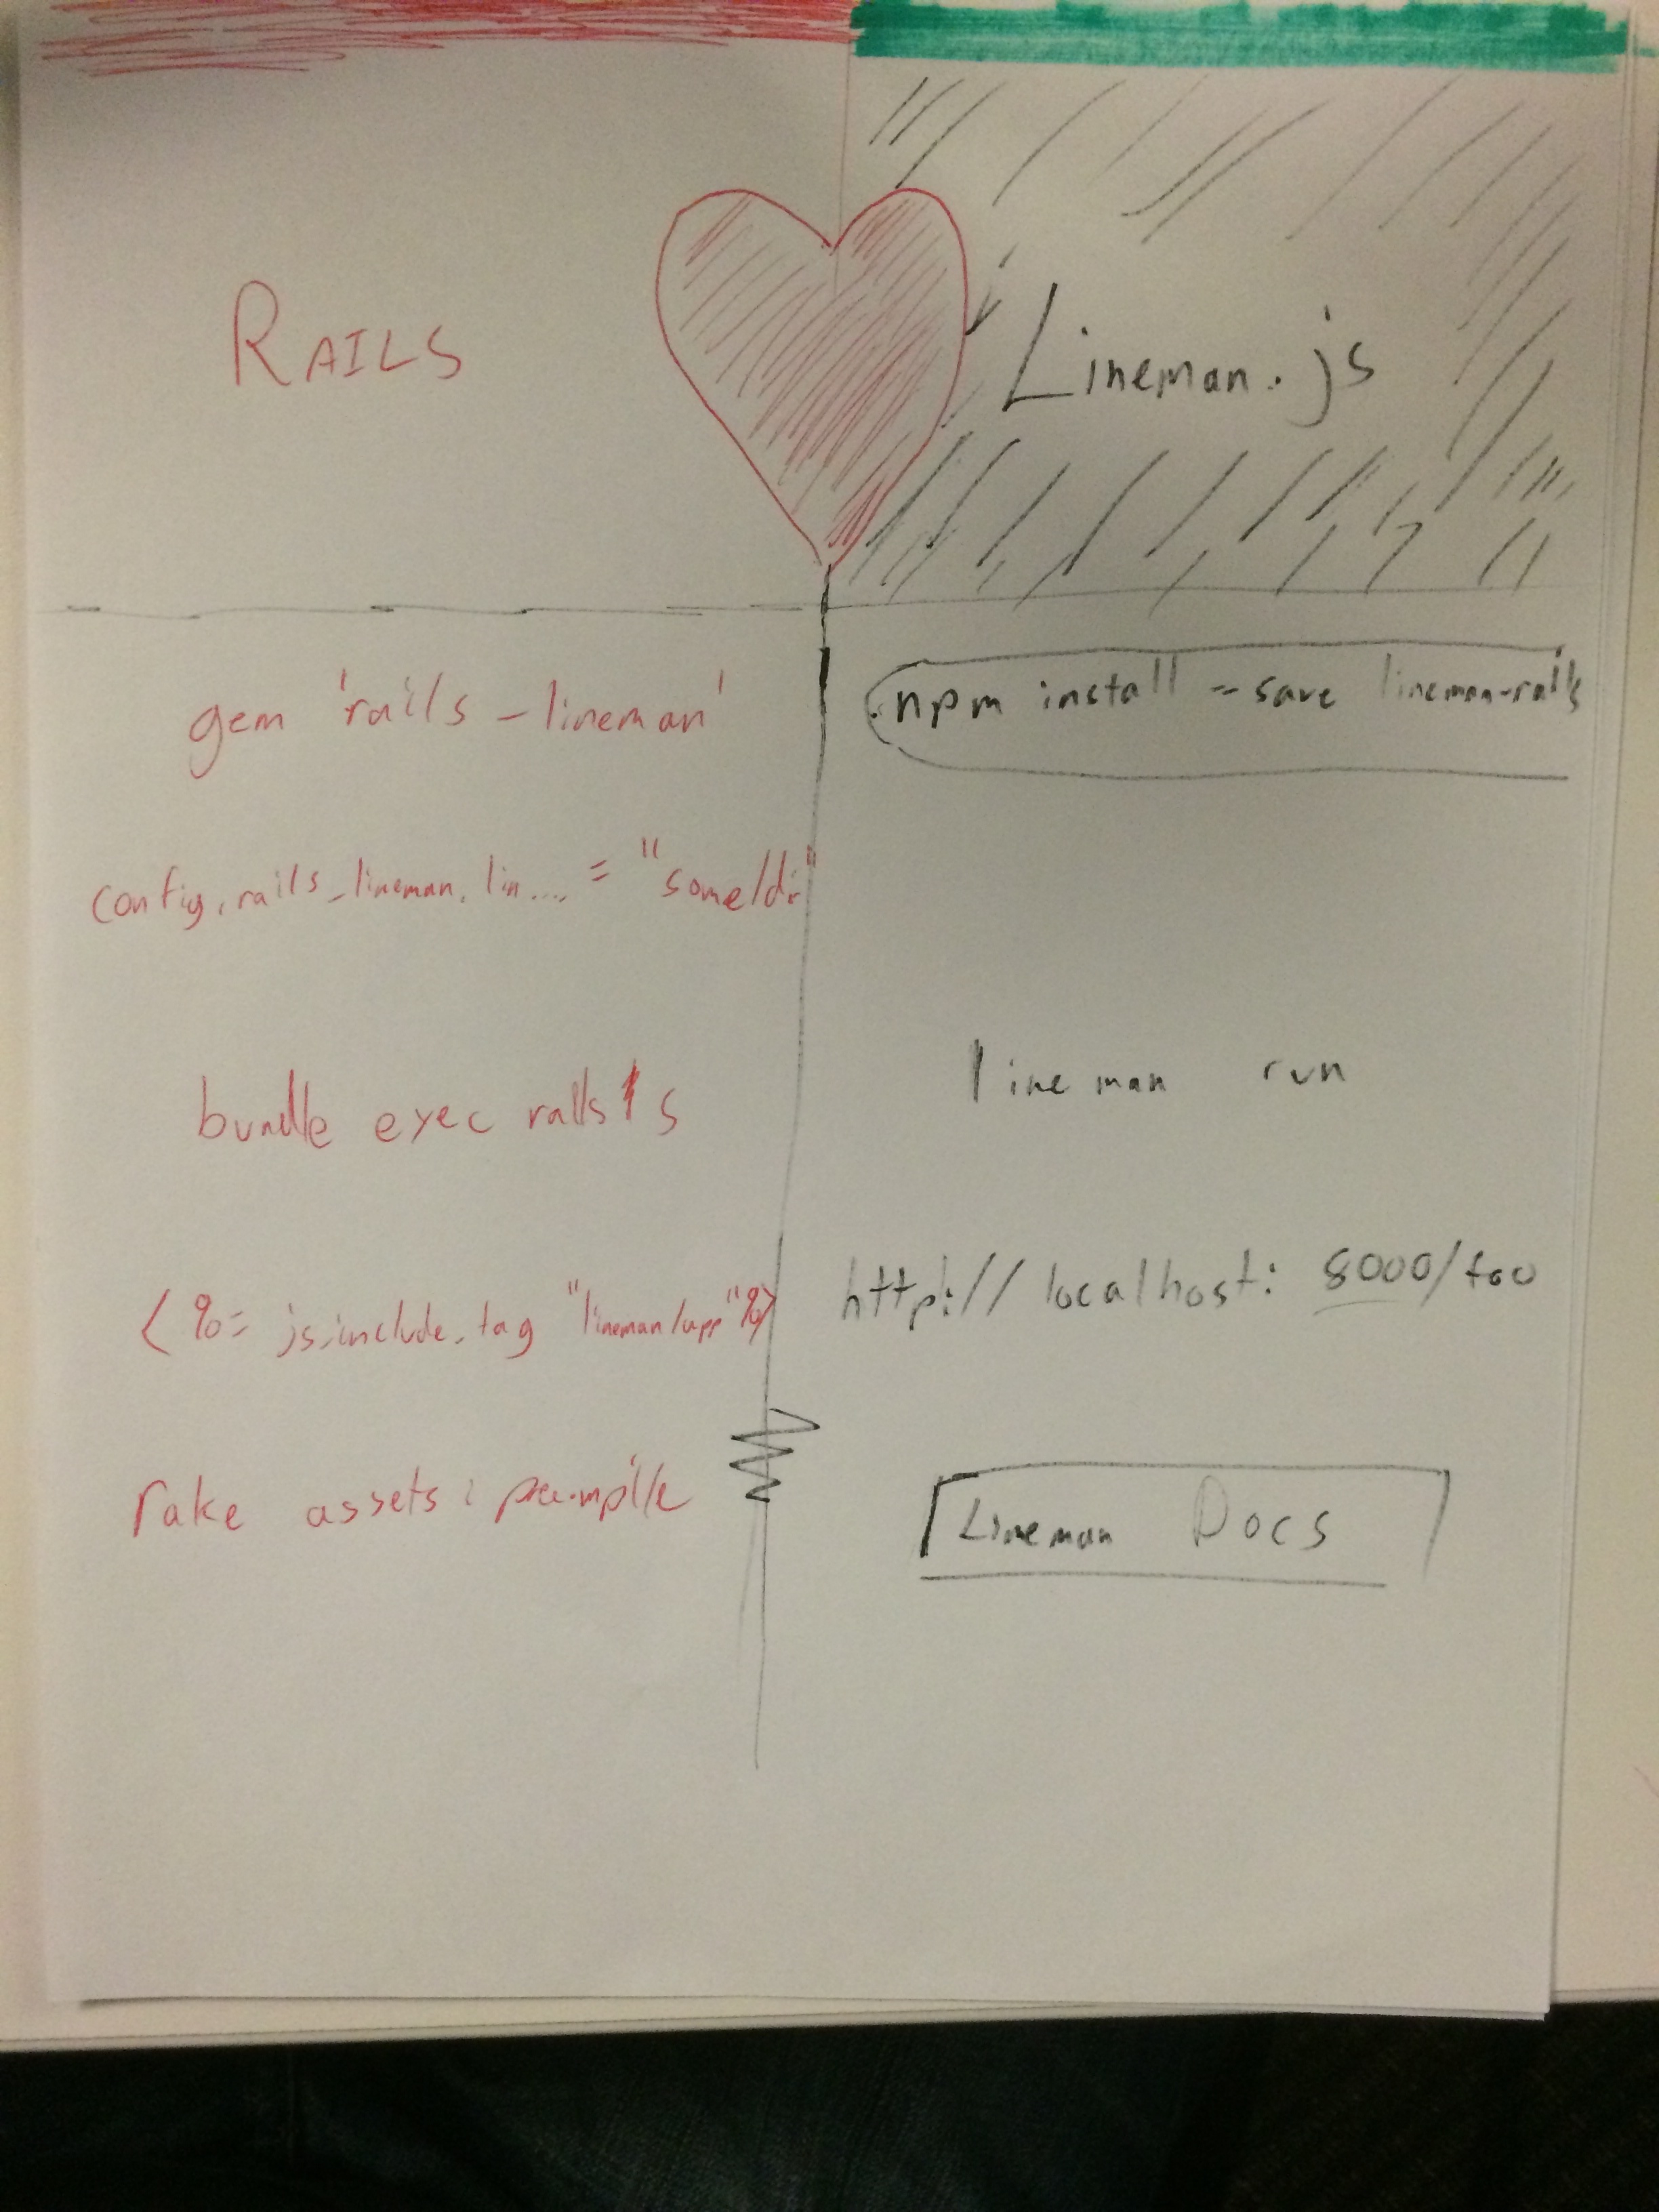 RAILS
Lineman.js
gem 'rails-lineman'
config.rails_lineman.lin.... = "some/dir"
bundle exec rails s
<%= js_include_tag "lineman/app" %>
rake assets:precompile
npm install --save lineman-rails
lineman run
http://localhost:8000/foo
Lineman Docs